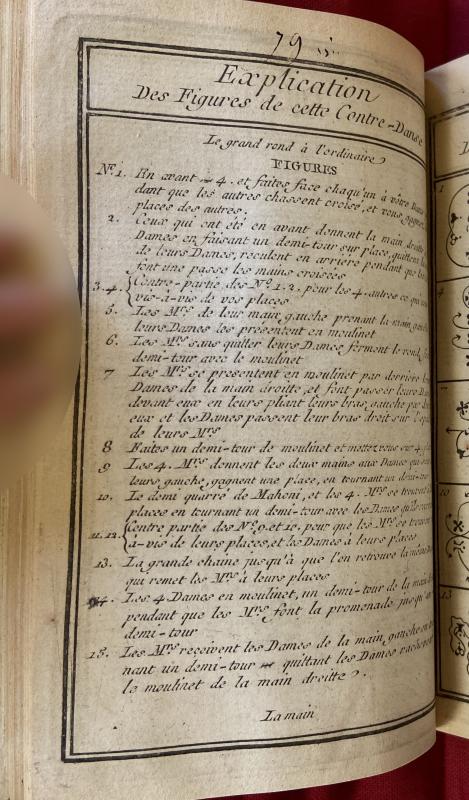 79
Explication
Des Figures de cette Contre-Danse
Le grand rond à l'ordinaire
FIGURES
Nº 1. En avant 4. et faites face chaqu'un à vôtre
dant que les autres chassent croisé, et vous gagnez
places des autres.
2. Ceux qui ont été en avant donnent la main droitte
Dames en faisant un demi-tour sur place, quittent
de leurs Dames, reculent en arriere pendant que
font une passe les mains croisées
3.4. Contre-partie des Nº 1.2. pour les 4. autres ce qui
vis-à-vis de vos places
5. Les Mrs de leur main gauche prenant la main
leurs Dames les présentent en moulinet
6. Les Mrs sans quitter leurs Dames forment le rond
demi-tour avec le moulinet
7 Les Mrs se présentent en moulinet par derriere
Dames de la main droitte, et font passer leurs
devant eux en leurs pliant leurs bras gauche par
eux et les Dames passent leur bras droit sur
de leurs Mrs
8 Faites un demi-tour de moulinet et mettez vous sur 4
9 Les 4. Mrs donnent les deux mains aux Dames qui
leurs gauche, gagnent une place, en tournant un demi-tour
10. Le demi quarré de Mahoni, et les 4. Mrs se trouvent
places en tournant un demi-tour avec les Dames
11.12. Contre partie des Nº 9. et 10. pour que les Mrs se trouvent
à-vis de leurs places, et les Dames à leurs places
13. La grande chaine jusqu'à que l'on retrouve la même
qui remet les Mrs à leurs places
14. Les 4 Dames en moulinet, un demi-tour de la main
pendant que les Mrs font la promenade jusqu'au
demi-tour
15. Les Mrs reçoivent les Dames de la main gauche en
nant un demi-tour quittant les Dames
le moulinet de la main droitte.
La main
1
4
7
10
13